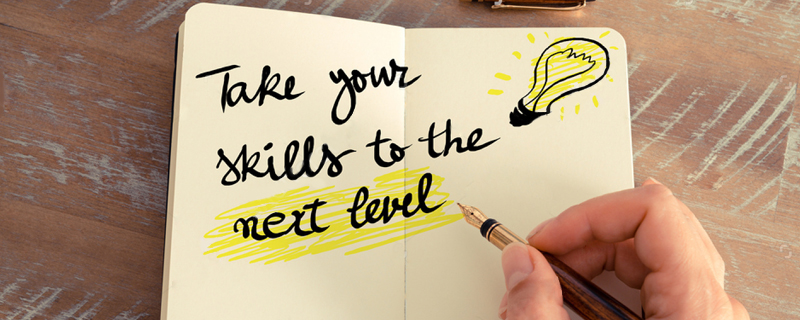 Take your
skills to the
next level